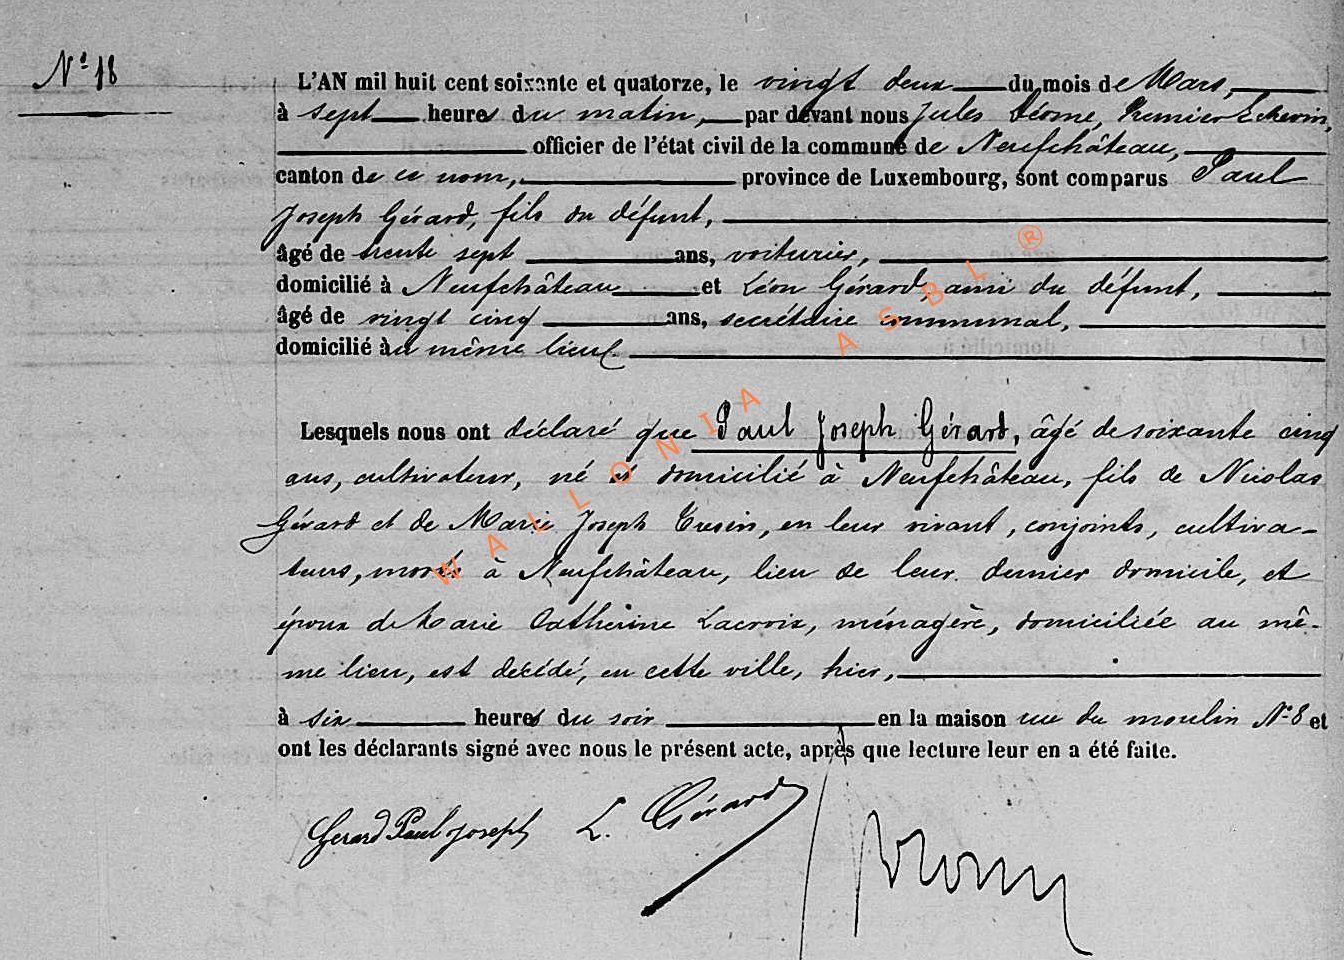 N° 18
L'AN mil huit cent soixante et quatorze, le vingt deux du mois de Mars,
à sept heures du matin, par devant nous Jules Déome, Premier Echevin,
officier de l'état civil de la commune de Neufchâteau,
canton de ce nom, province de Luxembourg, sont comparus Paul
Joseph Gérard, fils du défunt,
âgé de trente sept ans, voiturier,
domicilié à Neufchâteau et Léon Gérard, ami du défunt,
âgé de vingt cinq ans, secrétaire communal,
domicilié au même lieu.
Lesquels nous ont déclaré que Paul Joseph Gérard, âgé de soixante cinq
ans, cultivateur, né et domicilié à Neufchâteau, fils de Nicolas
Gérard et de Marie Joseph en leur vivant, conjoints, cultiva-
teurs, morts à Neufchâteau, lieu de leur dernier domicile, et
époux de Marie Catherine Lacroix, ménagère, domiciliée au mê-
me lieu, est décédé, en cette ville, hier,
à six heures du soir en la maison rue du moulin N° 8 et
ont les déclarants signé avec nous le présent acte, après que lecture leur en a été faite.
Gerard Paul Joseph L. Gérard
WALLONIA ASBL ®